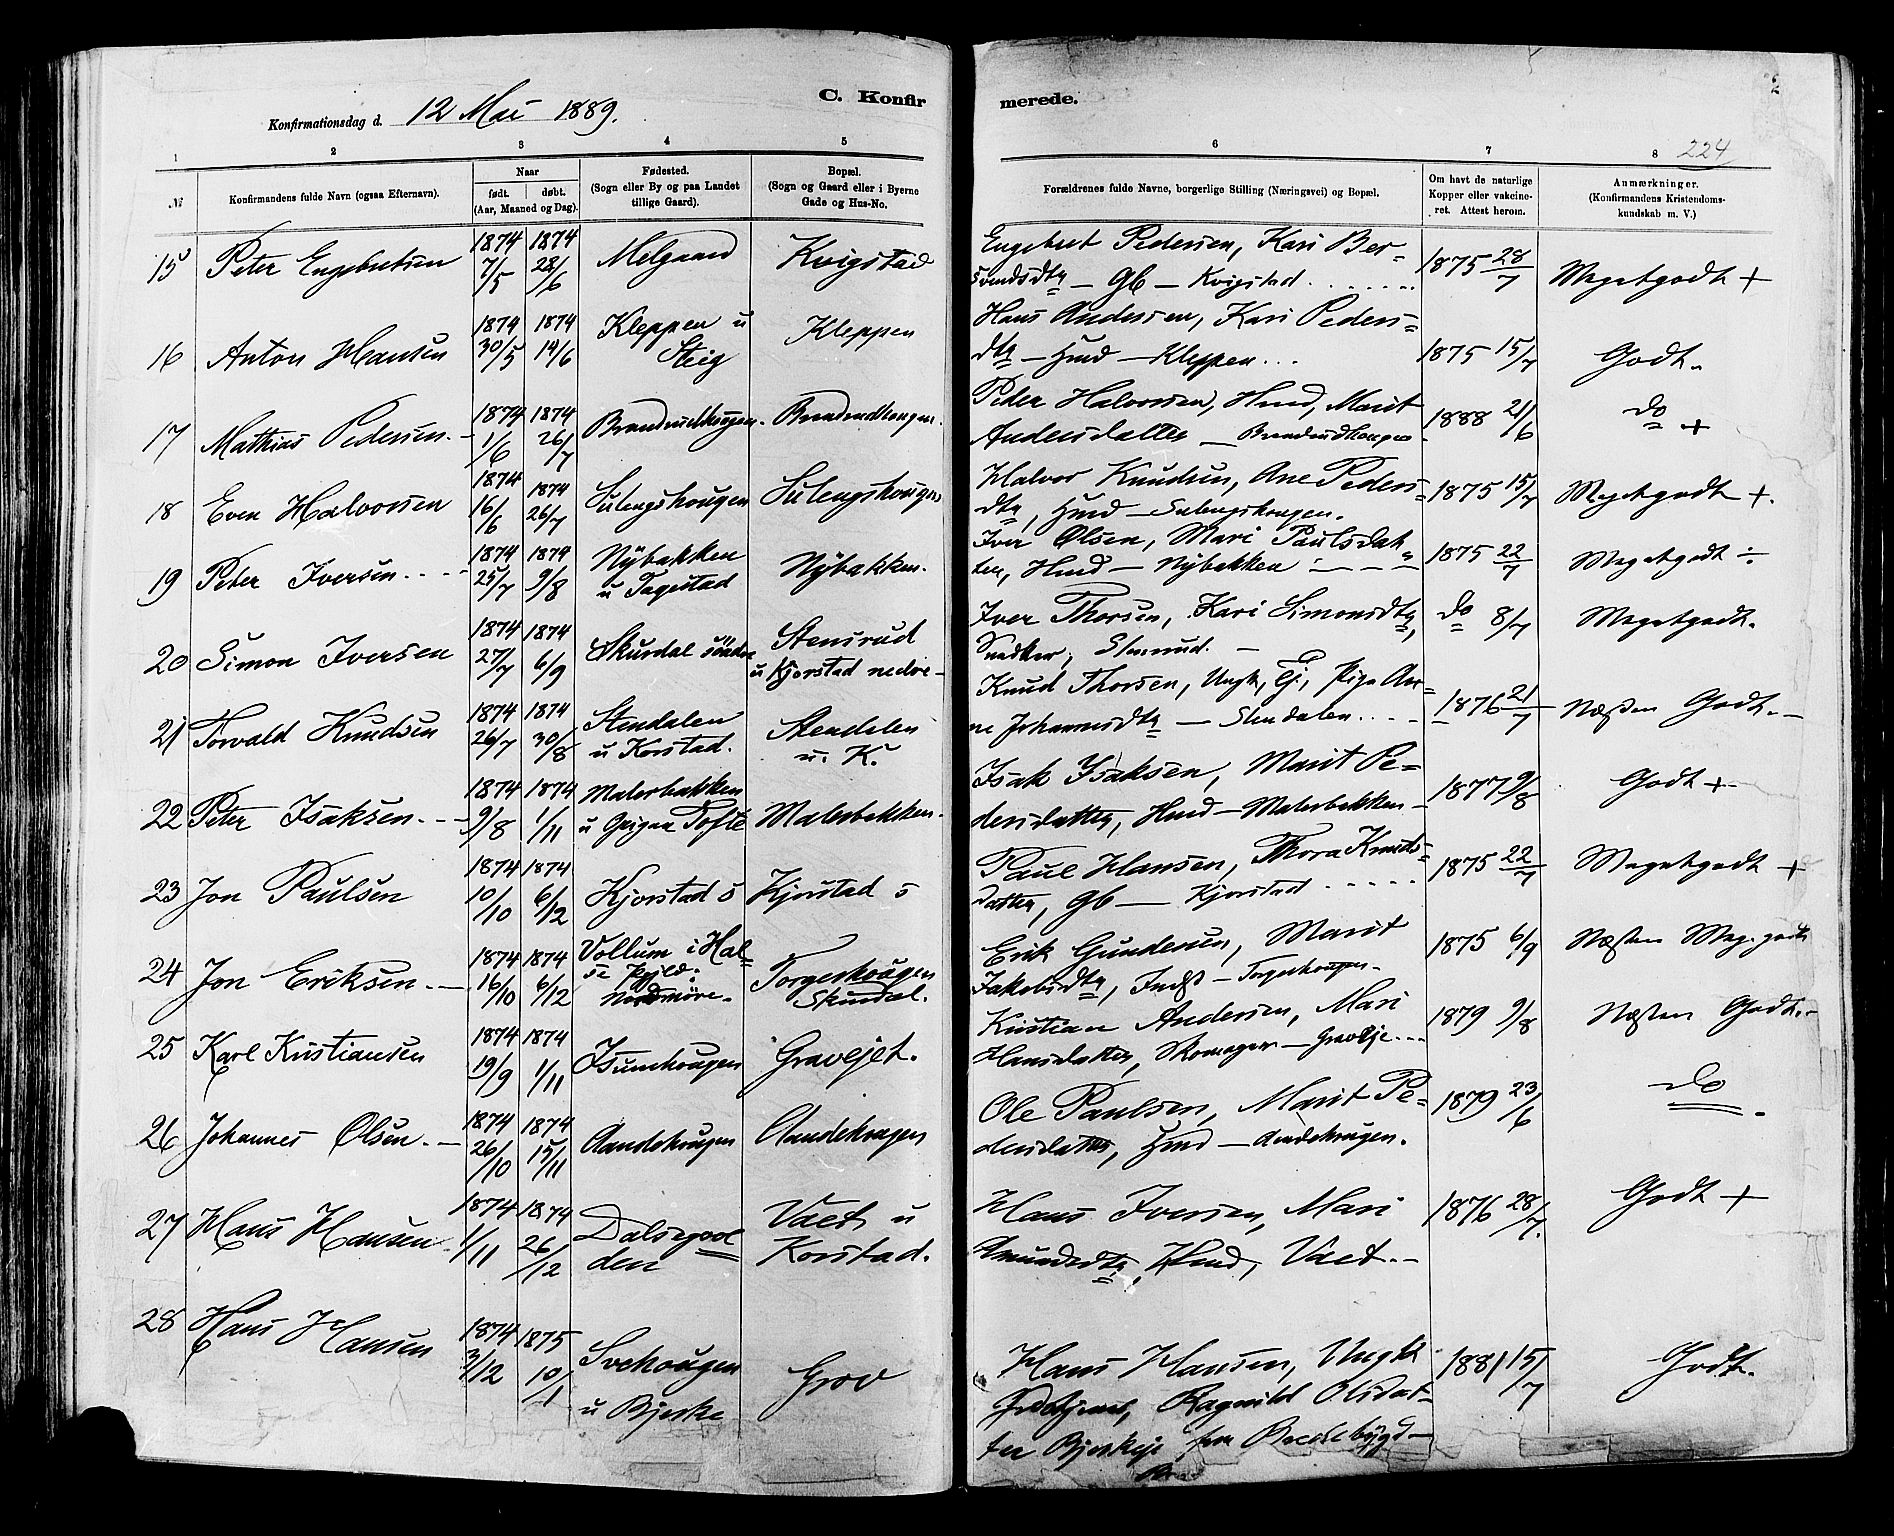 C. Konfirmerede.
Konfirmationsdag d. 12 Mai 1889.
224
1 2 3 4 5 6 7 8
№
Konfirmandens fulde Navn (ogsaa Efternavn).
Naar
født. døbt.
(Aar, Maaned og Dag).
Fødested.
(Sogn eller By og paa Landet
tillige Gaard).
Bopæl.
(Sogn og Gaard eller i Byerne
Gade og Hus-No.
Forældrenes fulde Navne, borgerlige Stilling (Næringsvei) og Bopæl.
Om havt de naturlige
Kopper eller vakcine-
ret. Attest herom.
Anmærkninger.
(Konfirmandens Kristendoms-
kundskab m. V.)
15 Peter Engebretsen 1874 7/5 1874 28/6 Melgaard Kvigstad
Engebret Pedersen, Kari Ber=
svendsdtr — Gb — Kvigstad 1875 28/7 Megetgodt +
16 Anton Hansen 1874 30/5 1874 14/6 Kleppen u Steig Kleppen
Hans Andersen, Kari Peders=
dtr — Hmd — Kleppen 1875 15/7 Godt.
17 Mathias Pedersen 1874 1/6 1874 26/7 Brandrudhougen. Brandrudhougen.
Peder Halvorsen, Hmd, Marit
Andersdatter — Brandrudhougen 1888 21/6 do +
18 Even Halvorsen 1874 16/6 1874 26/7 Sulengshougen Sulengshougen
Halvor Knudsen, Ane Peders=
dtr, Hmd — Sulengshougen. 1875 15/7 Megetgodt +.
19 Peter Iversen 1874 25/7 1874 9/8 Nÿbakken u Tagestad Nÿbakken.
Iver Olsen, Mari Paulsdat=
ter, Hmd — Nÿbakken 1875 22/7 Megetgodt ÷
20 Simon Iversen 1874 27/7 1874 6/9 Skurdal söndre Stensrud u Kjorstad nedre
Iver Thorsen, Kari Simonsdtr,
Snedker, Stensrud. do 8/7 Megetgodt.
21 Torvald Knudsen 1874 26/7 1874 30/8 Stendalen u Korstad. Stendalen u. K.
Knud Thorsen, Ungk, Ej, Pige An=
ne Johannesdtr — Stendalen 1876 21/7 Næsten Godt.
22 Peter Isaksen 1874 9/8 1874 1/11 Malerbakken u Tofte Malerbakken.
Isak Isaksen, Marit Pe=
dersdatter, Hmd — Malerbakken 1877 9/8 Godt +
23 Jon Paulsen 1874 10/10 1874 6/12 Kjorstad s Kjorstad s
Paul Hansen, Thora Knuds=
datter, Gb — Kjorstad 1875 22/7 Megetgodt +
24 Jon Eriksen 1874 16/10 1874 6/12 Vollum i Hal=
se Nordmöre Torgeshougen Skurdal.
Erik Gundersen, Marit
Jakobsdtr, Indst — Torgeshougen. 1875 6/9 Næsten Meg. godt
25 Karl Kristiansen 1874 19/9 1874 1/11 Isumhougen Gravejet.
Kristian Andersen, Mari
Hansdatter, Skomager — Graveje 1879 9/8 Næsten Godt.
26 Johannes Olsen 1874 26/10 1874 15/11 Aandehougen Aandehougen
Ole Paulsen, Marit Pe=
dersdatter, Hmd — Aandehougen. 1879 23/6 do.
27 Hans Hansen 1874 1/11 1874 26/12 Dalsegsol
den Vaet u Korstad.
Hans Iversen, Mari
Amundsdtr, Hmd, Vaet. 1876 28/7. Godt +
28 Hans Hansen 1874 3/12 1875 10/1 Svehougen u Bjerke Grov
Hans Hansen, Ungk
Ragnild Olsdat=
ter Bjerkeje fra Bredebÿgd 1881 15/7 Godt.